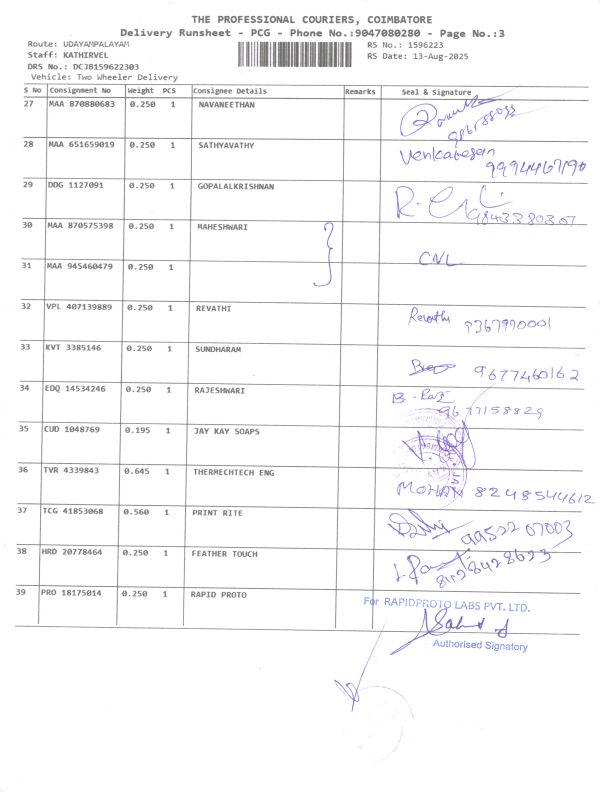 THE PROFESSIONAL COURIERS, COIMBATORE
Delivery Runsheet - PCG - Phone No.:9047080280 - Page No.:3
Route: UDAYAMPALAYAM RS No.: 1596223
Staff: KATHIRVEL RS Date: 13-Aug-2025
DRS No.: DCJB159622303
Vehicle: Two Wheeler Delivery
S No Consignment No Weight PCS Consignee Details Remarks Seal & Signature
27 MAA 870880683 0.250 1 NAVANEETHAN
28 MAA 651659019 0.250 1 SATHYAVATHY Venkatesan 9994467190
29 DDG 1127091 0.250 1 GOPALALKRISHNAN 9843380307
30 MAA 870575398 0.250 1 MAHESHWARI
CNL
31 MAA 945460479 0.250 1
32 VPL 407139889 0.250 1 REVATHI Revathi 7367990001
33 KVT 3385146 0.250 1 SUNDHARAM 9677460162
34 EDQ 14534246 0.250 1 RAJESHWARI B. Raji
9677158829
35 CUD 1048769 0.195 1 JAY KAY SOAPS
36 TVR 4339843 0.645 1 THERMECHTECH ENG MOHAN 8248544612
37 TCG 41853068 0.560 1 PRINT RITE 9952207003
38 HRD 20778464 0.250 1 FEATHER TOUCH 8428428623
39 PRO 18175014 0.250 1 RAPID PROTO For RAPIDPROTO LABS PVT. LTD.
Authorised Signatory